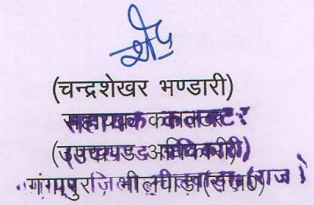 (चन्द्रशेखर भण्डारी)
सहायक कलक्टर
(उपखण्ड अधिकारी)
गंगापुर जिला भीलवाड़ा (राज०)